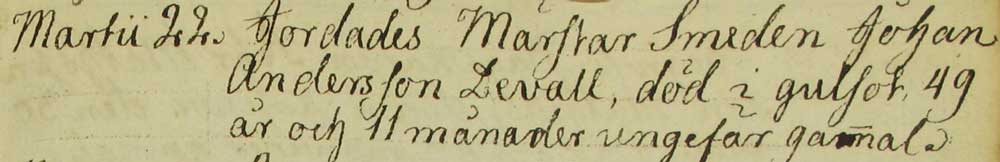 Martii 22. Jordades Marstar Smeden Johan
Andersson Devall, död i gulsot, 49
år och 11 månader ungefär gam̄al.